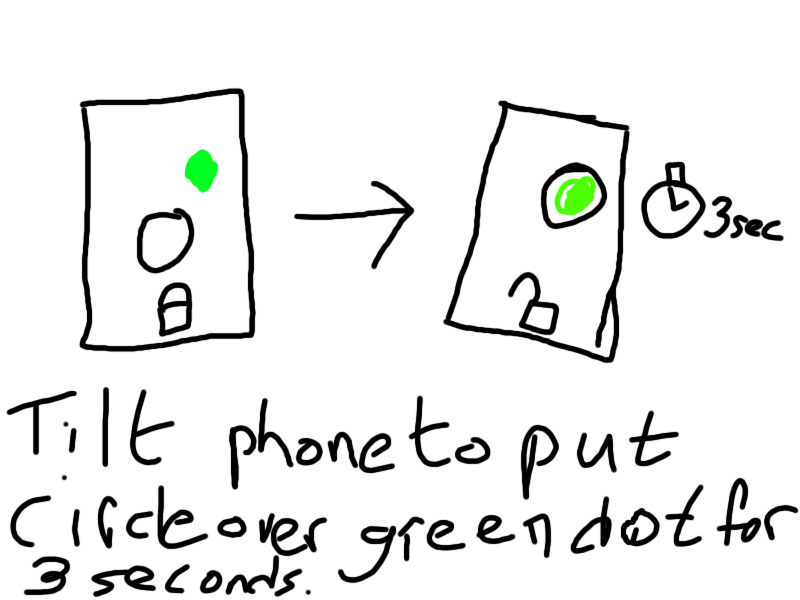 3sec
Tilt phone to put
Circle over green dot for
3 seconds.